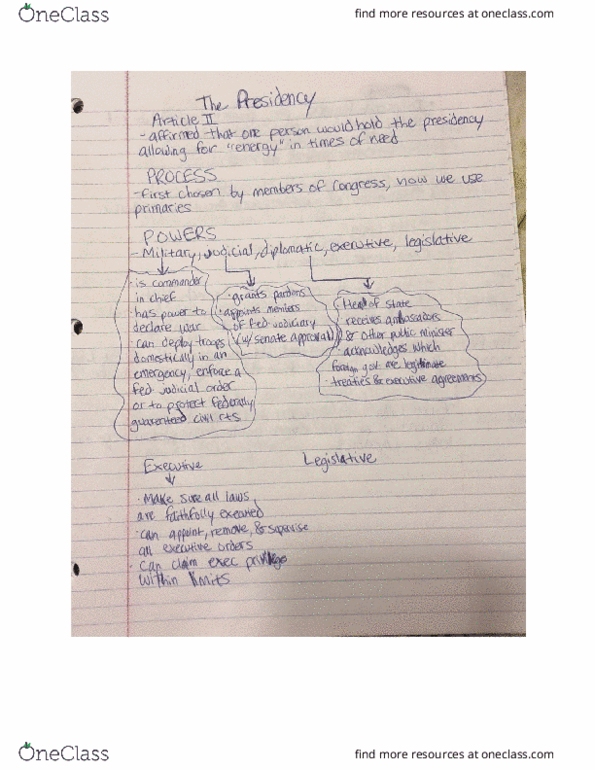 OneClass
find more resources at oneclass.com
The Presidency
Article II
- affirmed that one person would hold the presidency
allowing for "energy" in times of need
PROCESS
- first chosen by members of Congress, now we use
primaries
POWERS
- Military, judicial, diplomatic, executive, legislative
· is commander
in chief
· has power to
declare war
· can deploy troops
domestically in an
emergency, enforce a
fed judicial order
or to protect federally
guaranteed civil rts
· grants pardons
· appoints members
of fed judiciary
(w/ senate approval)
Head of State
receives ambassadors
& other public minister
acknowledges which
foreign gov. are legitimate
· treaties & executive agreements
Executive
· Make sure all laws
are faithfully executed
· can appoint, remove, & supervise
all executive orders
· Can claim exec privilege
within limits
Legislative
OneClass
find more resources at oneclass.com